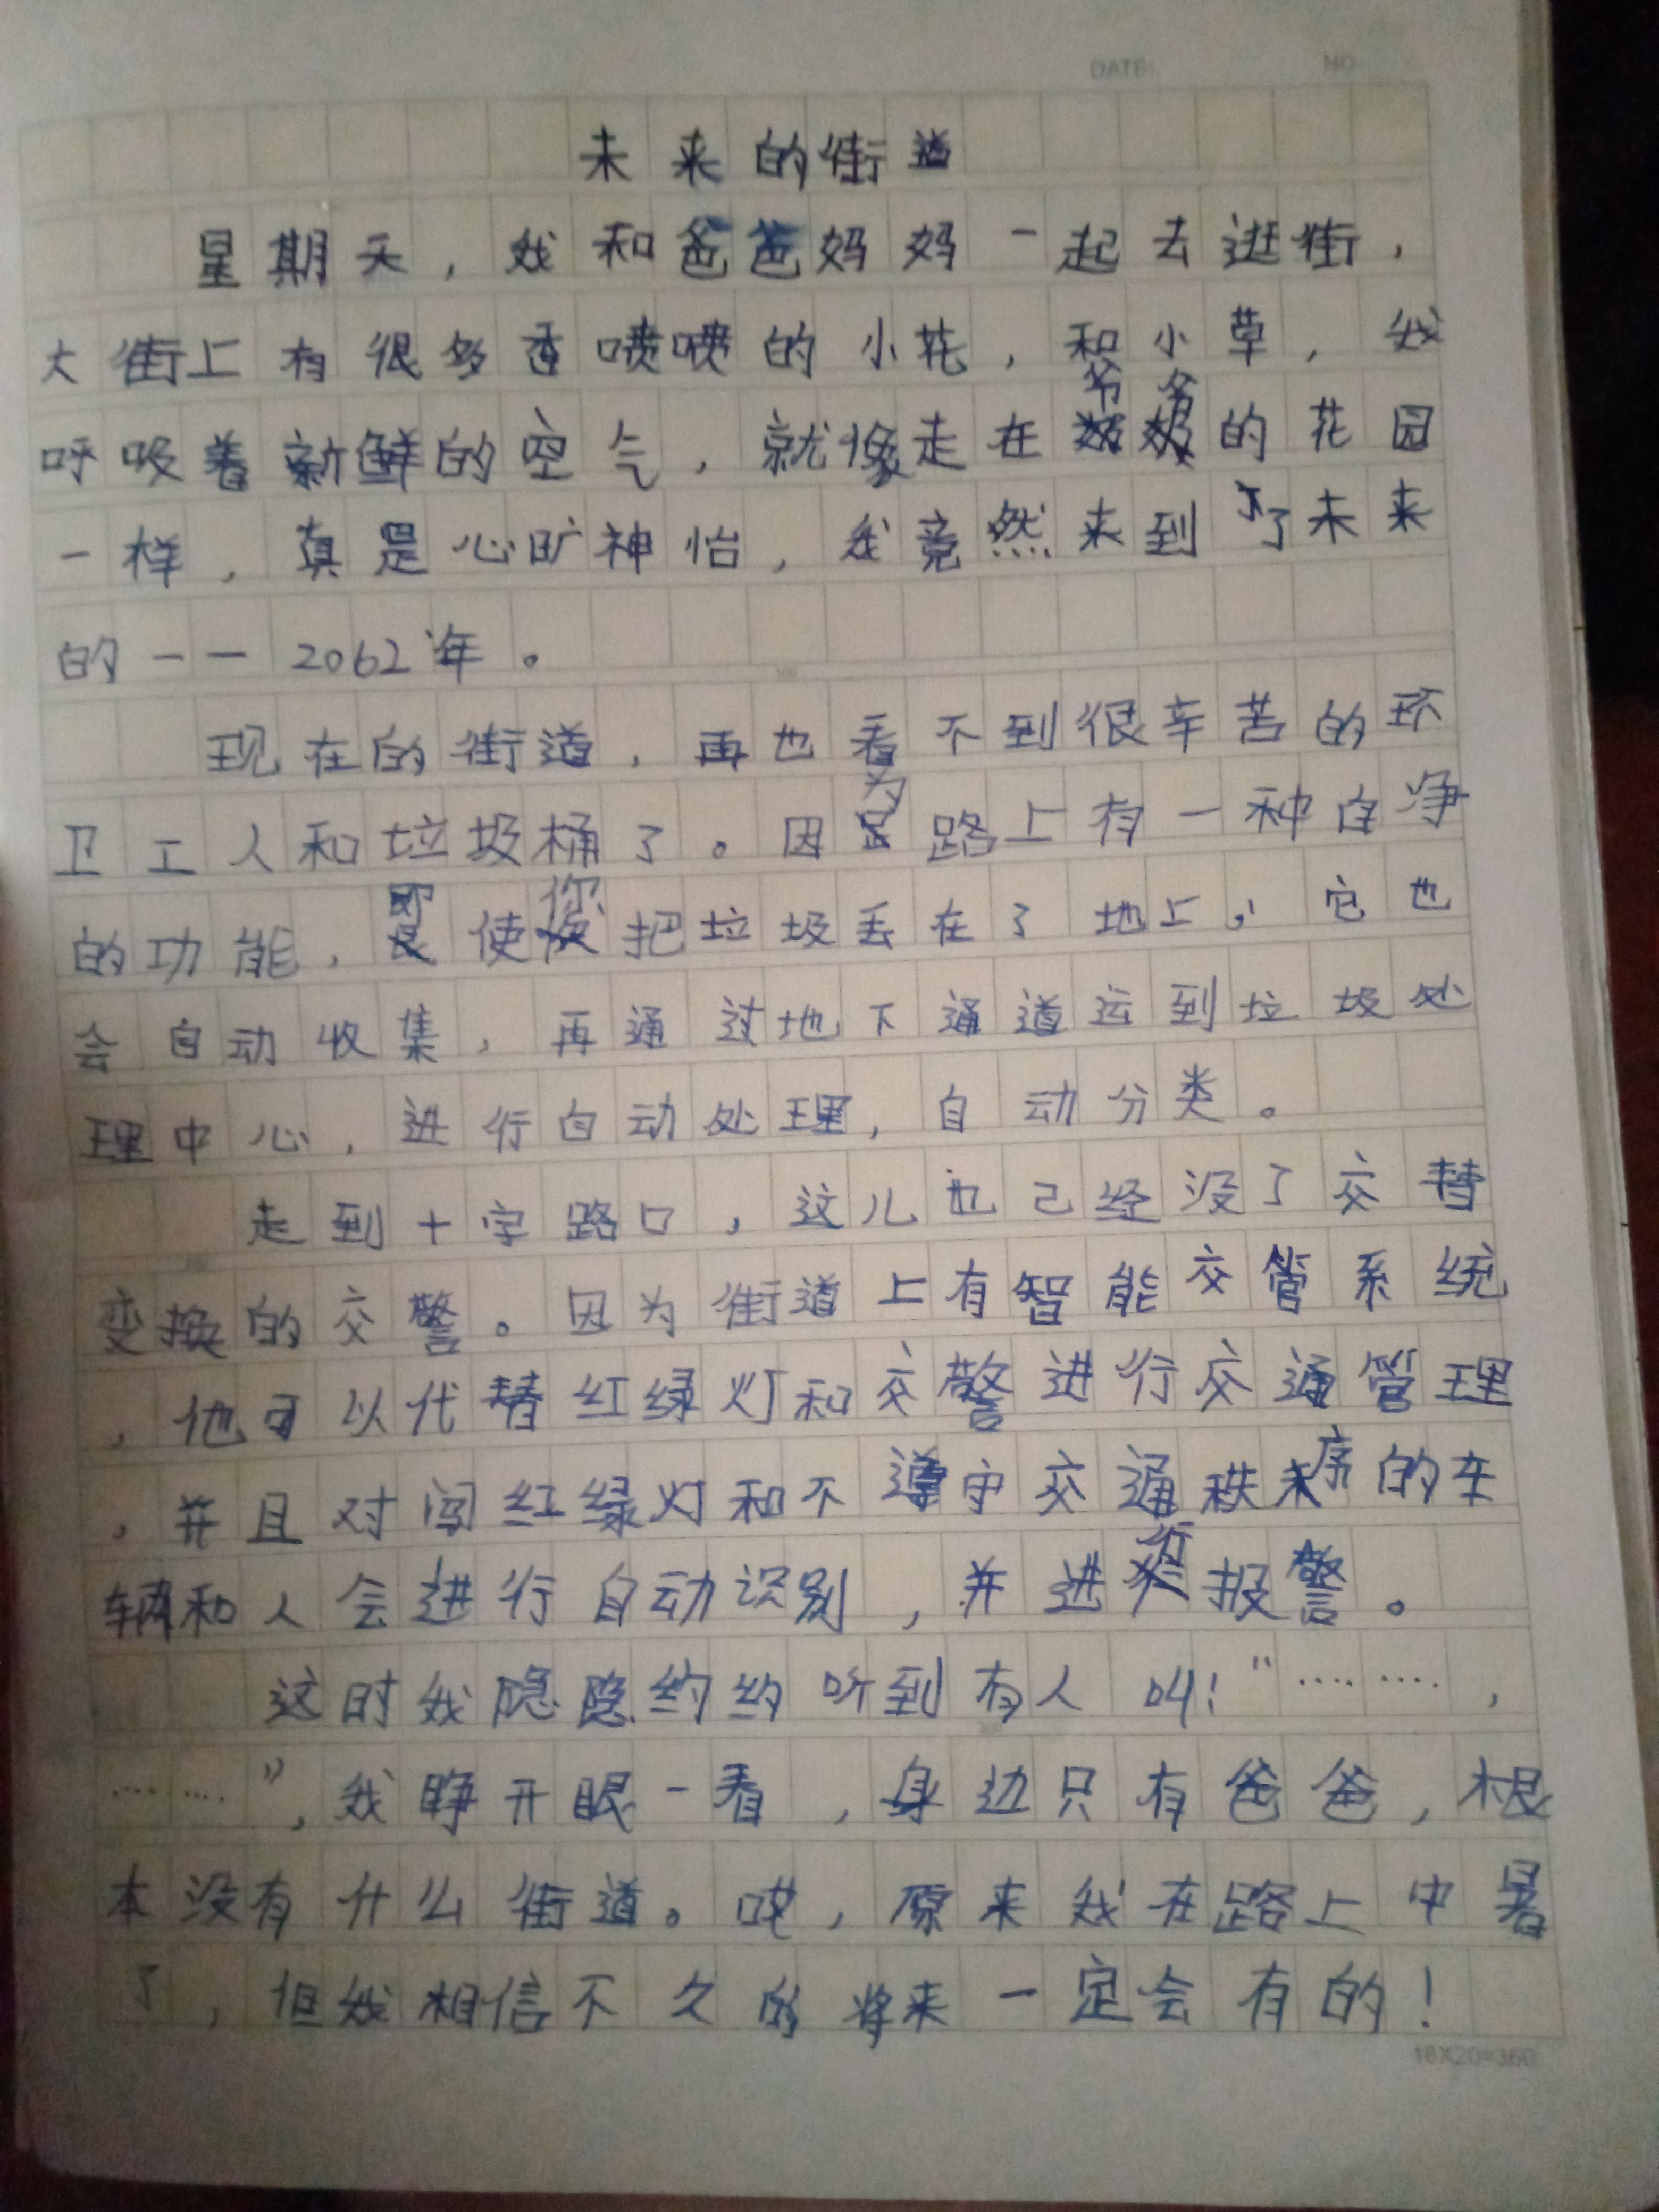 DATE: NO
未来的街道
星期天，我和爸爸妈妈一起去逛街，
大街上有很多香喷喷的小花，和小草，我
呼吸着新鲜的空气，就像走在爷爷的花园
一样，真是心旷神怡，我竟然来到了未来
的——2062年。
现在的街道，再也看不到很辛苦的环
卫工人和垃圾桶了。因为路上有一种自净
的功能，即使你把垃圾丢在了地上，它也
会自动收集，再通过地下通道运到垃圾处
理中心，进行自动处理，自动分类。
走到十字路口，这儿也已经没了交替
变换的交警。因为街道上有智能交管系统
，他可以代替红绿灯和交警进行交通管理
，并且对闯红绿灯和不遵守交通秩序的车
辆和人会进行自动识别，并进行报警。
这时我隐隐约约听到有人叫！“………，
………”，我睁开眼一看，身边只有爸爸，根
本没有什么街道。哎，原来我在路上中暑
了，但我相信不久的将来一定会有的！
18X20=360